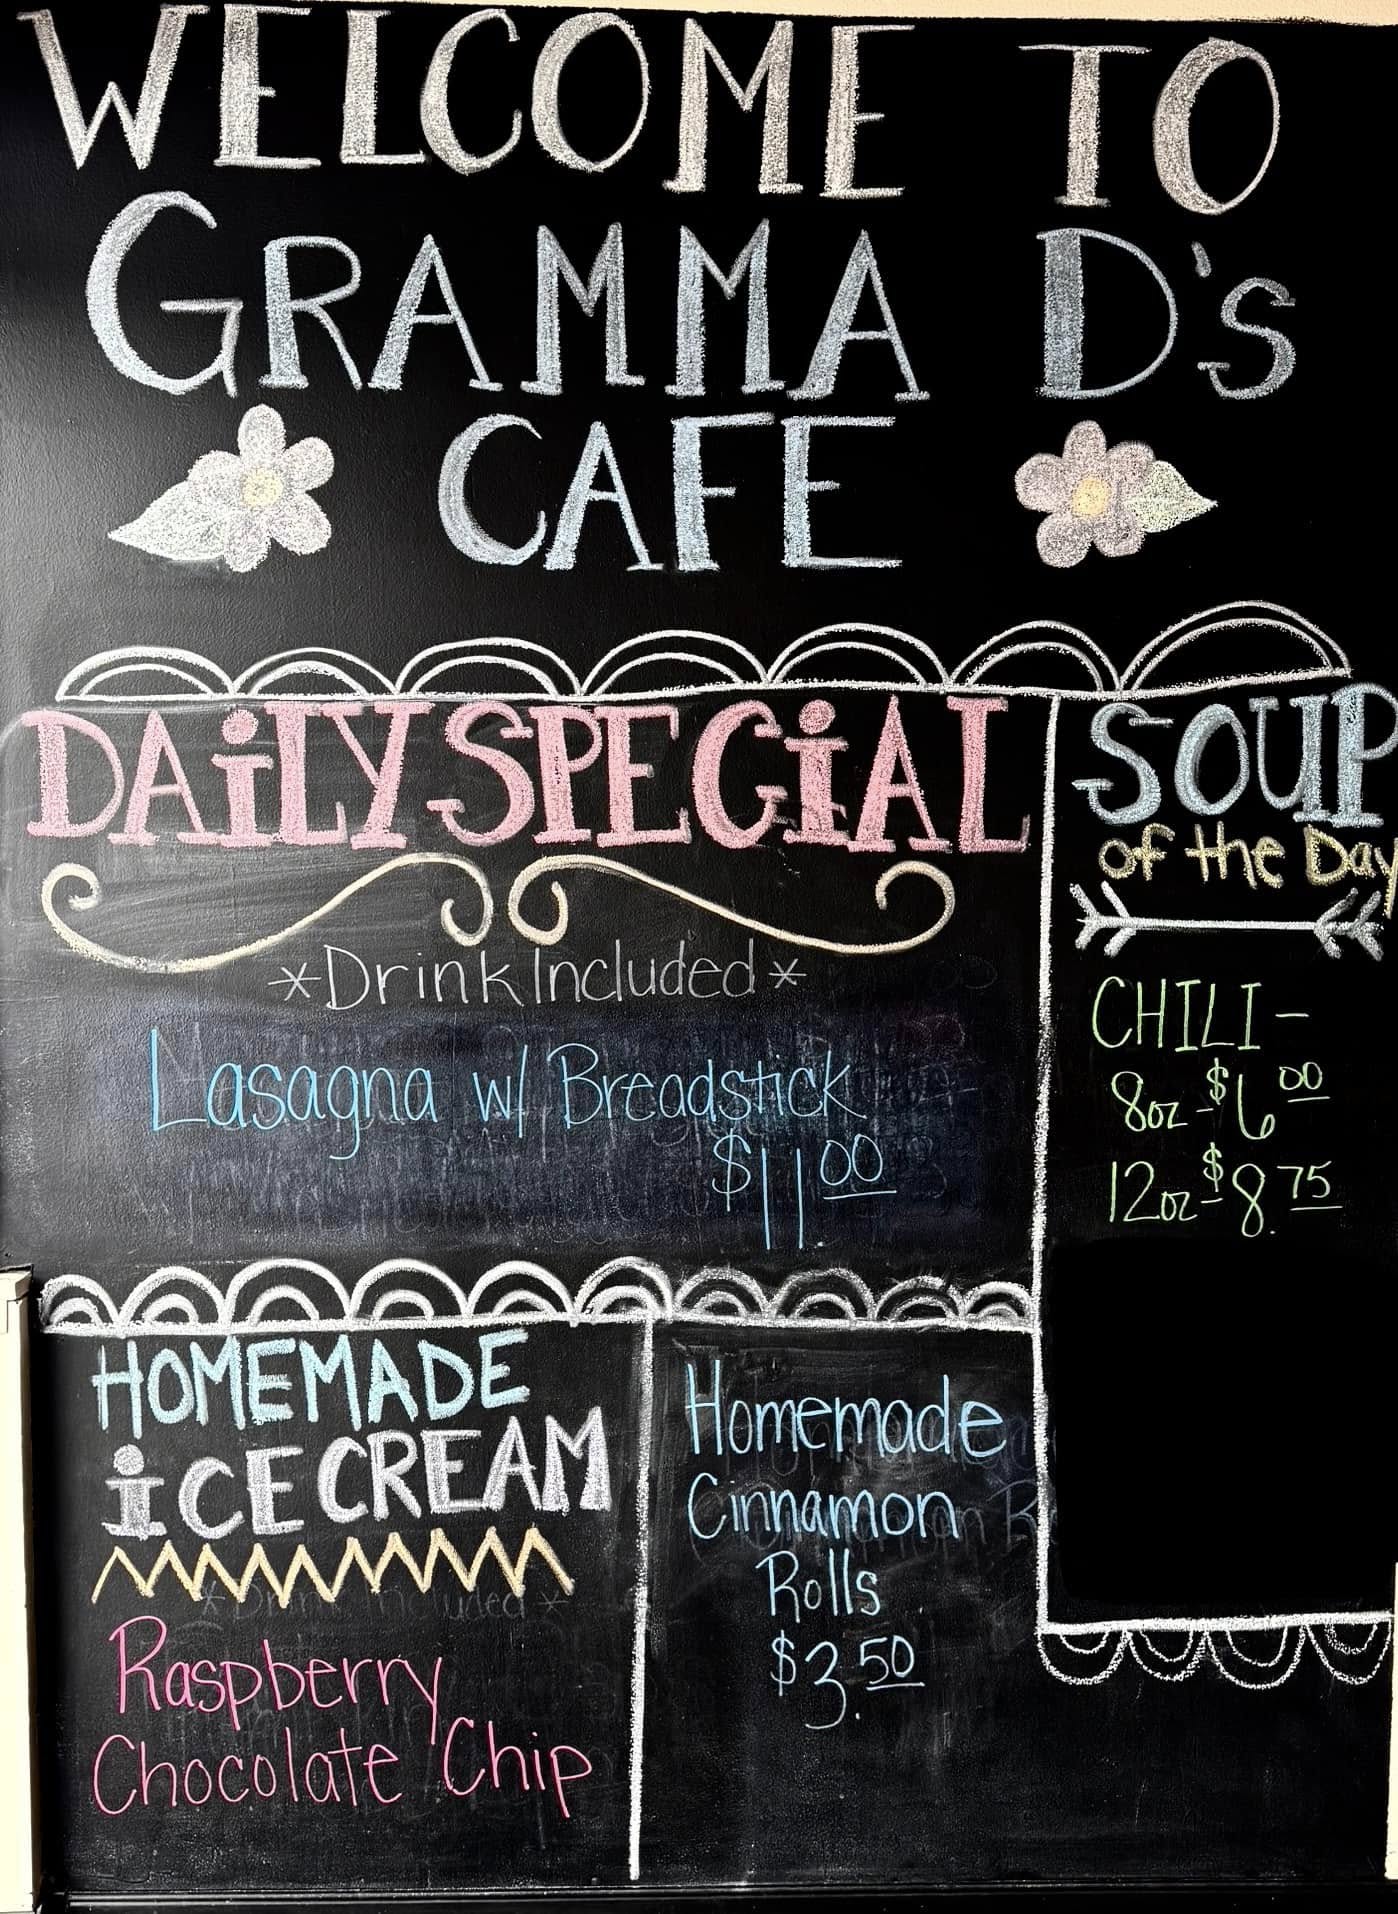 WELCOME TO
GRAMMA D'S
CAFE
DAiLY SPECiAL
*Drink Included*
Lasagna w/ Breadstick
$11.00
SOUP
of the Day
CHILI-
8oz-$6 00
12oz-$8.75
HOMEMADE
iCE CREAM
*Drink Included*
Raspberry
Chocolate Chip
Homemade
Cinnamon
Rolls
$3.50